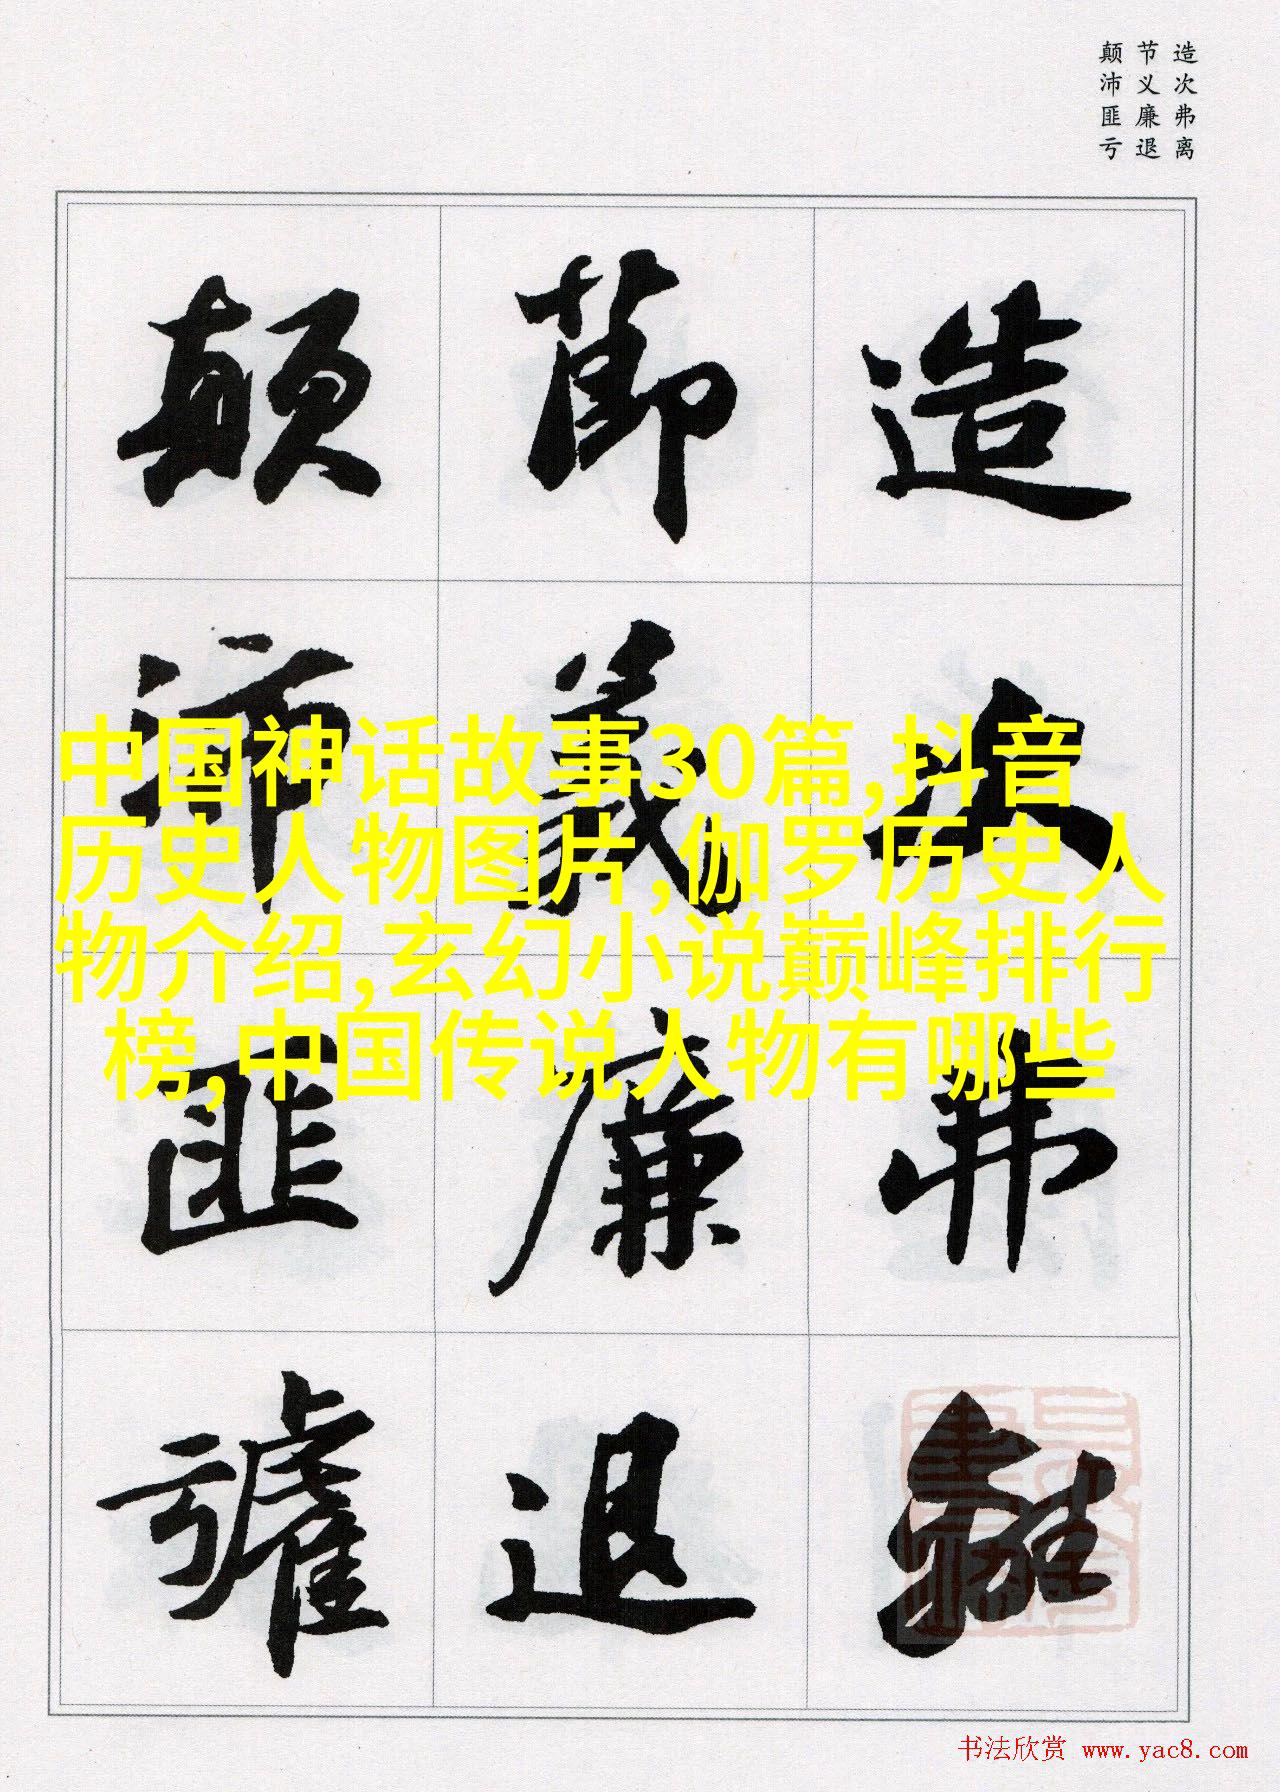 造次弗离
节义廉退
颠沛匪亏
造次弗離
節義廉退
顛沛匪虧
中国神话故事30篇,抖音
历史人物图片,伽罗历史人
物介绍,玄幻小说巅峰排行
榜,中国传说人物有哪些
书法欣赏 www.yac8.com